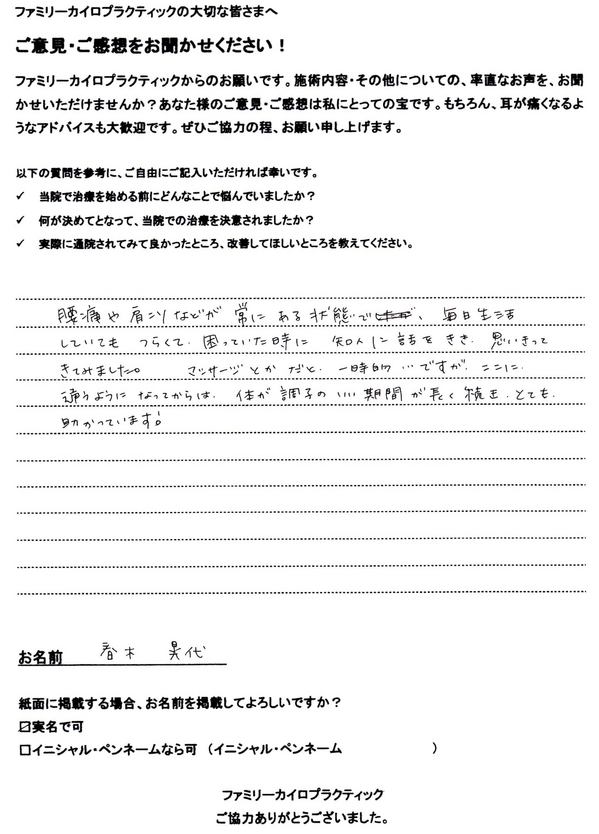 ファミリーカイロプラクティックの大切な皆さまへ
ご意見・ご感想をお聞かせください！
ファミリーカイロプラクティックからのお願いです。施術内容・その他についての、率直なお声を、お聞
かせいただけませんか？あなた様のご意見・ご感想は私にとっての宝です。もちろん、耳が痛くなるよ
うなアドバイスも大歓迎です。ぜひご協力の程、お願い申し上げます。
以下の質問を参考に、ご自由にご記入いただければ幸いです。
✓ 当院で治療を始める前にどんなことで悩んでいましたか？
✓ 何が決めてとなって、当院での治療を決意されましたか？
✓ 実際に通院されてみて良かったところ、改善してほしいところを教えてください。
腰痛や肩こりなどが常にある状態で、毎日生活
していてもつらくて、困っていた時に知人に話をきき、思いきって
きてみました。 マッサージとかだと、一時的…ですが、ここに
通うようになってからは、体が調子のいい期間が長く続き、とても
助かっています！
お名前 春木 代
紙面に掲載する場合、お名前を掲載してよろしいですか？
☑実名で可
□イニシャル・ペンネームなら可 （イニシャル・ペンネーム ）
ファミリーカイロプラクティック
ご協力ありがとうございました。